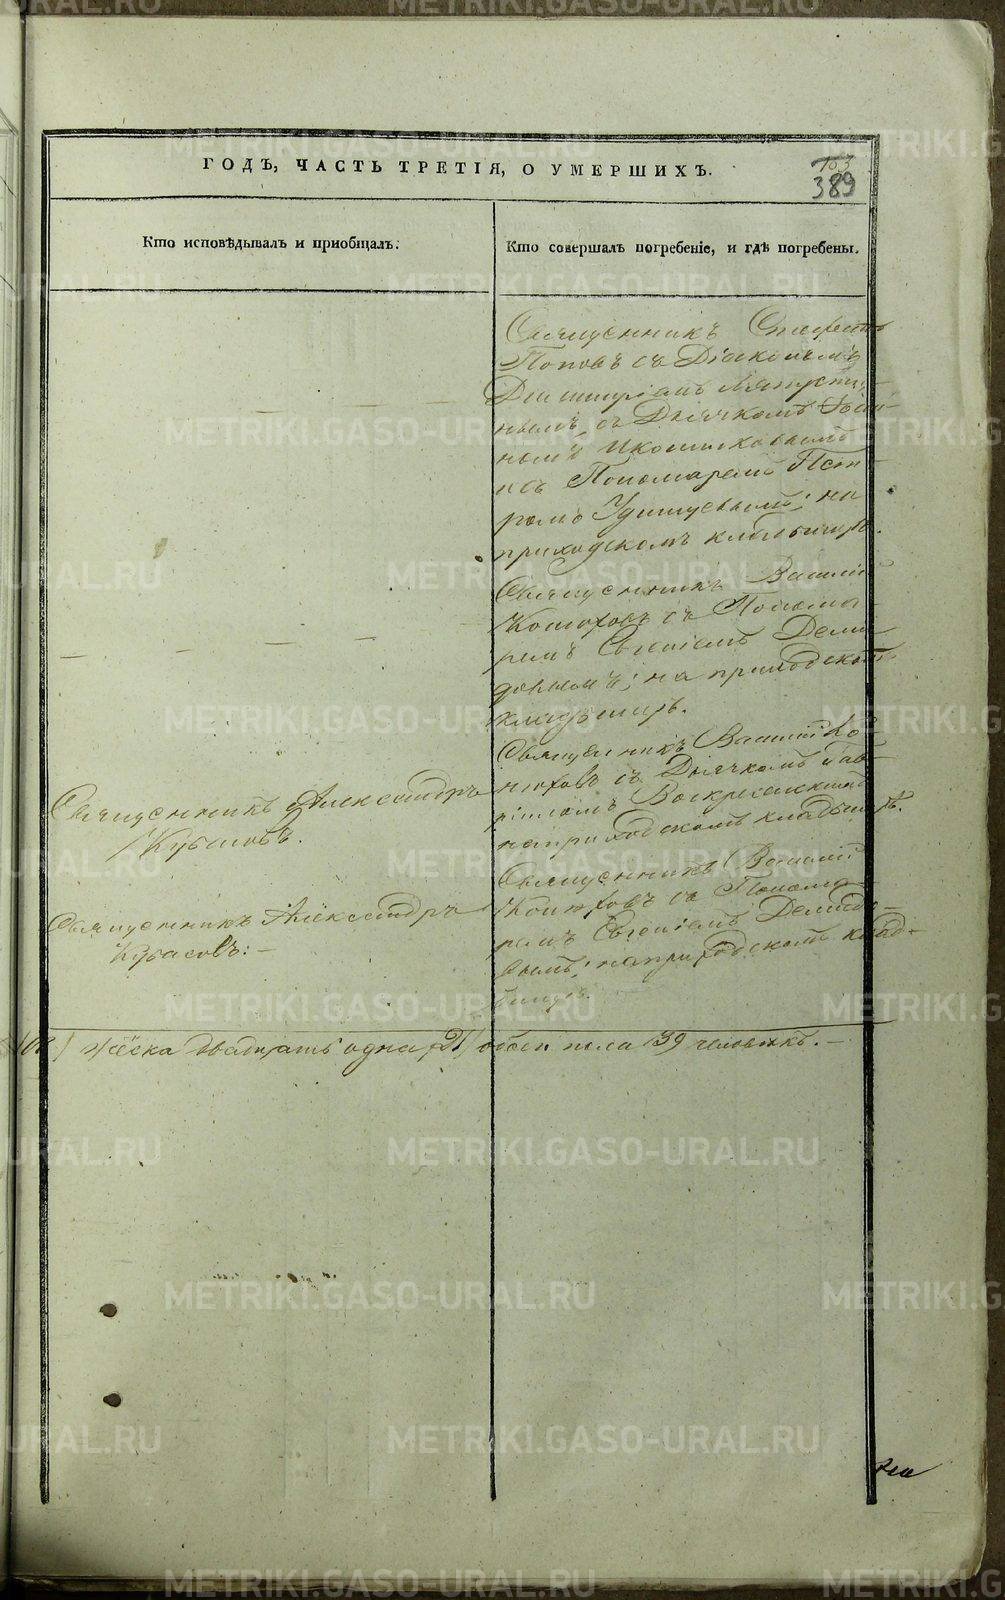 ГОДЪ, ЧАСТЬ ТРЕТІЯ, О УМЕРШИХЪ.
163
389
Кто исповѣдывалъ и пріобщалъ.
Кто совершалъ погребеніе, и гдѣ погребены.
Священникъ Стефанъ
Поповъ съ Діакономъ
Димитріемъ
нымъ, съ Дьячкомъ
нымъ
и съ Пономаремъ Пет-
ромъ на
приходскомъ кладбищѣ.
Священникъ Василій
Конюховъ съ Понома-
ремъ Евгеніемъ Деми-
довымъ; на приходскомъ
кладбищѣ.
Священникъ Александръ
Кубасовъ.
Священникъ Василій Ко-
нюховъ съ Дьячкомъ Гав-
ріиломъ Воскресенскимъ
на приходскомъ кладбищѣ.
Священникъ Александръ
Кубасовъ:-
Священникъ Василій
Конюховъ съ Понома-
ремъ Евгеніемъ Демидо-
вымъ; на приходскомъ клад-
бищѣ.
женска двадцать одна 21/ обоего пола 39 человѣкъ.-
METRIKI.GASO-URAL.RU